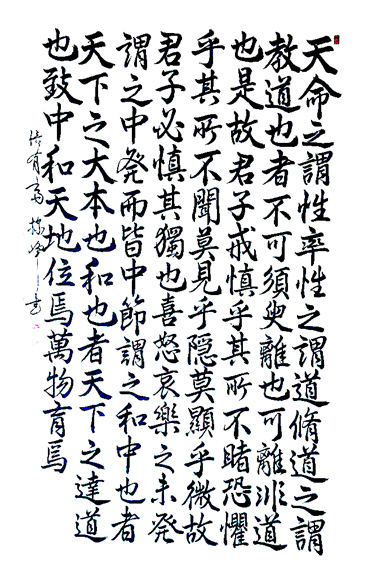 天命之謂性率性之謂道脩道之謂
教道也者不可須臾離也可離非道
也是故君子戒慎乎其所不睹恐懼
乎其所不聞莫見乎隐莫顯乎微故
君子必慎其獨也喜怒哀樂之未発
謂之中発而皆中節謂之和中也者
天下之大本也和也者天下之達道
也致中和天地位焉萬物育焉